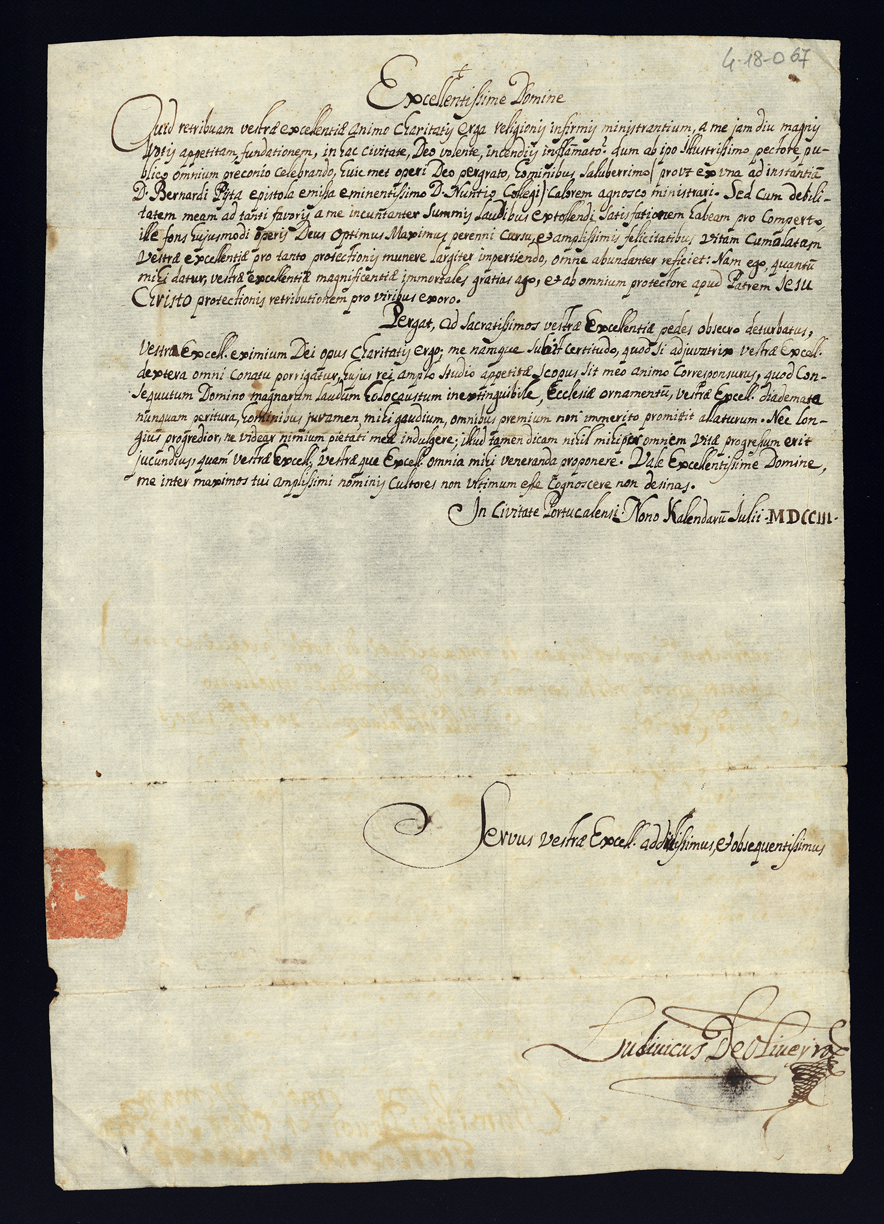 4-18-0 67
Excellentissime Domine
Quid retribuam vestræ excellentiæ animo Charitatis erga religionis infirmis ministrantium, a me jam diu magnis
votis appetitam fundationem, in hac civitate, Deo volente, incendiis inflamato? dum ab ipo Illustrissimo pectore, pu-
blico omnium preconio celebrando, huic met operi Deo pergrato, hominibus saluberrimo (prout ex una ad instantiã
D. Bernardi Pita epistola emissa eminentissimo D. Nuntio Collegi) Calorem agnosco ministrari. Sed cum debili-
tatem meam ad tanti favoris a me incuntanter summis laudibus extollendi, satisfationem habeam pro Comperto
ille fons hujusmodi operis Deus Optimus Maximus perenni cursu, et amplissimis felicitatibus vitam cumulatam
vestræ excellentiæ pro tanto protectionis munere largiter impertiendo, omne abundanter reficiet: Nam ego, quantũ
mihi datur, vestræ excellentiæ magnificentiæ immortales gratias ago, et ab omnium protectore apud Patrem Jesu
Christo protectionis retributionem pro viribus exoro.
Pergat, ad Sacratissimos vestræ Excellentiæ pedes obsecro deturbatus,
Vestra Excell. eximium Dei opus Charitatis ergo; me namque subit certitudo, quod si adjuvatrix vestræ Excell.
dextera omni Conatu porrigatur, hujus rei amplo studio appetitæ scopus sit meo animo Corresponsurus, quod Con-
sequutum Domino magnarum laudum holocaustum inextinguibile, Ecclesiæ ornamentũ, vestræ Excell. diademata
nunquam peritura, hominibus juvamen, mihi gaudium, omnibus premium non immerito promittit allaturum. Nec lon-
gius progredior, ne videar nimium pietati meæ indulgere; illud tamen dicam nihil mihi per omnem vitæ progressum erit
jucundius, quam vestræ Excell. vestræque Excell. omnia mihi veneranda proponere. Vale Excellentissime Domine,
me inter maximos tui amplissimi nominis Cultores non ultimum esse Cognoscere non desinas.
In Civitate Portucalensi. Nono Kalendarũ Julii. MDCCIII.
Servus vestræ Excell. addictissimus, et obsequentissimus
Ludivicus De Oliveyra